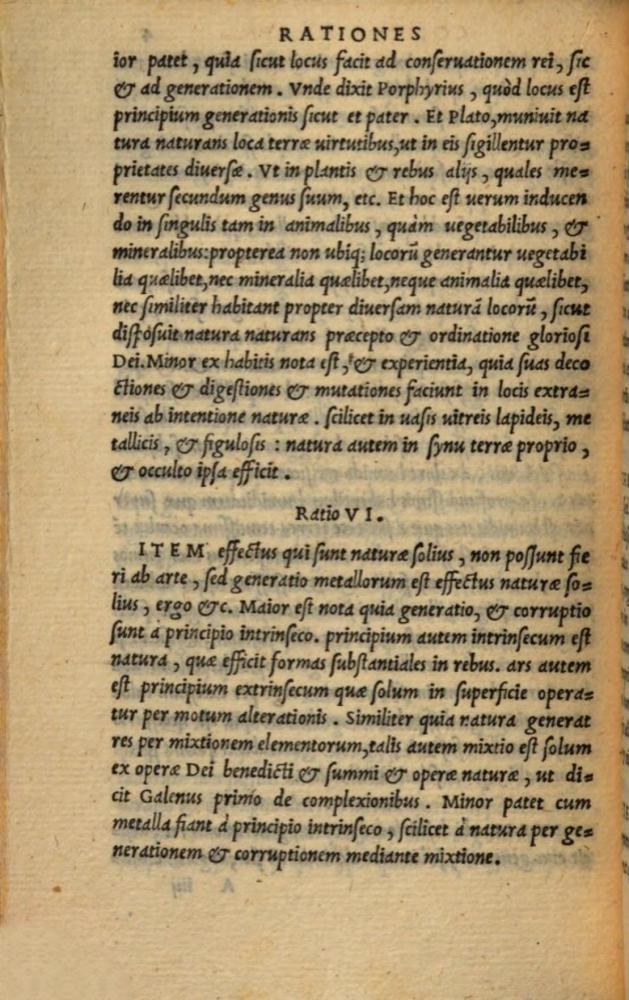 RATIONES
ior patet, quia sicut locus facit ad conseruationem rei, sic
& ad generationem. Vnde dixit Porphyrius, quòd locus est
principium generationis sicut et pater. Et Plato, muniuit na
tura naturans loca terræ uirtutibus, ut in eis sigillentur pro=
prietates diuersæ. Vt in plantis & rebus alijs, quales me=
rentur secundum genus suum, etc. Et hoc est uerum inducen
do in singulis tam in animalibus, quàm uegetabilibus, &
mineralibus: propterea non ubiq; locorũ generantur uegetabi
lia quælibet, nec mineralia quælibet, neque animalia quælibet,
nec similiter habitant propter diuersam naturã locorũ, sicut
disposuit natura naturans præcepto & ordinatione gloriosi
Dei. Minor ex habitis nota est, & experientia, quia suas deco
ctiones & digestiones & mutationes faciunt in locis extra=
neis ab intentione naturæ. scilicet in uasis uitreis lapideis, me
tallicis, & figulosis: natura autem in synu terræ proprio,
& occulto ipsa efficit.
Ratio VI.
ITEM effectus qui sunt naturæ solius, non possunt fie
ri ab arte, sed generatio metallorum est effectus naturæ so=
lius, ergo &c. Maior est nota quia generatio, & corruptio
sunt à principio intrinseco. principium autem intrinsecum est
natura, quæ efficit formas substantiales in rebus. ars autem
est principium extrinsecum quæ solum in superficie opera=
tur per motum alterationis. Similiter quia natura generat
res per mixtionem elementorum, talis autem mixtio est solum
ex operæ Dei benedicti & summi & operæ naturæ, ut di=
cit Galenus primo de complexionibus. Minor patet cum
metalla fiant à principio intrinseco, scilicet à natura per ge=
nerationem & corruptionem mediante mixtione.